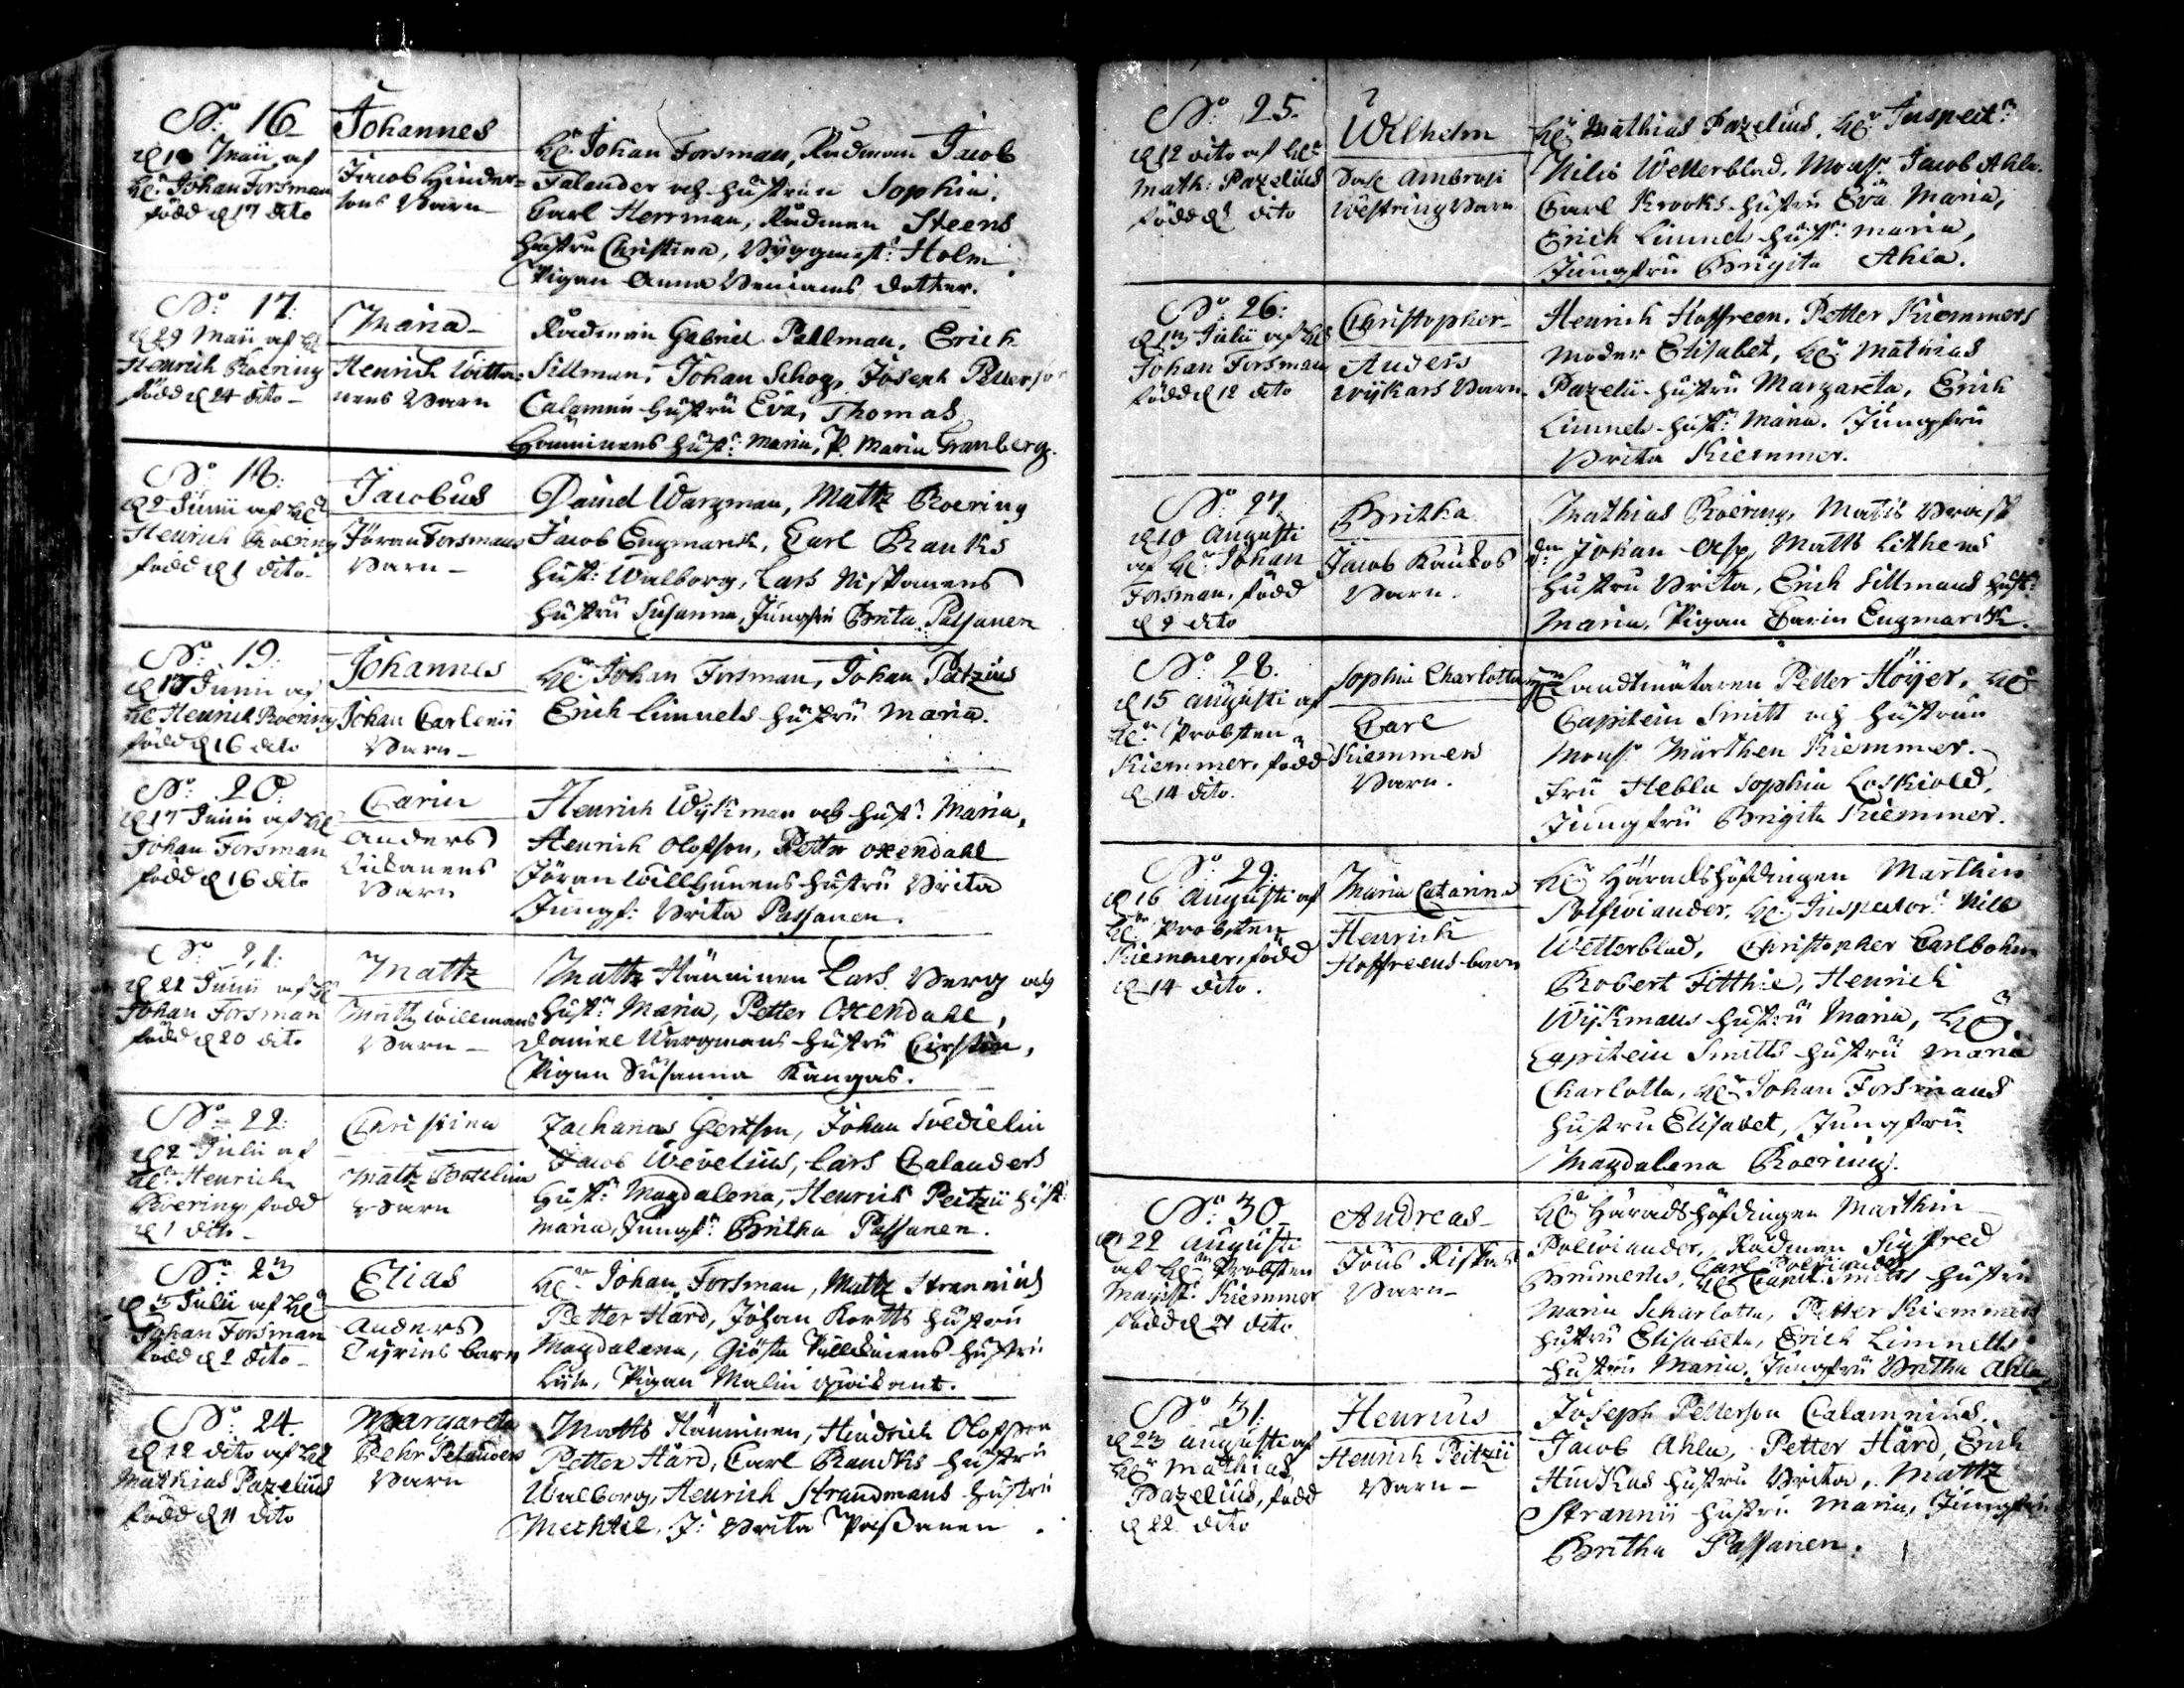 No: 16
d 18 Maii af
H: Johan Forsman
född d 17 dito
Johannes
Jacob Hinder-
sons Barn
H: Johan Forsman, Rådman Jacob
Falander och hustrun Sophia,
Carl Herrman, Rådman Steens
hustru Christina, Byggmest: Holm
Pigan Anna Beniams dotter.
No: 17:
d 29 Maii af H
Henrich Roering
född d 24 dito
Maria
Henrich
nens Barn
Rådman Gabriel Pallman, Erich
Sillman, Johan Schog, Joseph Petterson
Calamnii hustru Eva, Thomas
hust: Maria, P. Maria Granberg.
No: 18:
d 2 Junii af H
Henrich Roering
född d 1 dito
Jacobus
Jöran Forsmans
Barn
Daniel Wargman, Mattz Roering
Jacob Engmarck, Carl Rauks
hust: Walborg, Lars
hustru Susanna, Jungfru Brita Passanen
No: 19:
d 17 Junii af
H: Henrich Roering
född d 16 dito
Johannes
Johan Carlenii
Barn
H: Johan Forsman, Johan Peitzius
Erich Limnels hustru Maria.
No: 20:
d 17 Junii af H
Johan Forsman
född d 16 dito
Carin
Anders
Barn
Henrich Wijkman och hust: Maria,
Henrich Olofson, Petter Oxendahl
Jöran Willhunens hustru Brita
Jungf: Brita Passanen.
No: 21:
d 22 Junii af H
Johan Forsman
född d 20 dito
Mattz
Mattz Willemans
Barn
Mattz Hänninen Lars Berg och
hust: Maria, Petter Oxendahl,
Daniel Wargmans hustru Cirstin,
Pigan Susanna Kangas.
No: 22:
d 2 Julii af
H: Henrich
Roering, född
d 1 dito
Christina
Mattz
Barn
Zacharias Gertson, Johan
Jacob Wevelius, Lars Calanders
hust: Magdalena, Henrich Peitzii hust:
Maria, Jungf: Britha Passanen.
No: 23
d 3 Julii af H
Johan Forsman
född d 2 dito
Elias
Anders
barn
H: Johan Forsman, Mattz Strannius
Petter Hård, Johan Kortts hustru
Magdalena, Giösta hustru
Pigan Malin
No: 24.
d 12 dito af H
Mathias Pazelius
född d 11 dito
Margareta
Pehr Pelanders
Barn
Matts Hänninen, Hindrich Olofsson
Petter Hård, Carl Raucks hustru
Walborg, Henrich Strandmans hustru
Mechtel, J: Brita Passanen.
No: 25.
d 12 dito af H
Math: Pazelius
född d dito
Wilhelm
Ambrosi
Westring Barn
H: Mathias Pazelius, H: Inspect:
Nilis Wetterblad, Mons: Jacob Ahla.
Carl Krooks hustru Eva Maria,
Erich Limnels hust: Maria,
Jungfru Brigita Ahla.
No: 26:
d 13 Julii af H
Johan Forsman
född d 12 dito
Christopher
Anders
Wijkars Barn
Henrich Hoffreen, Petter Kiemmers
moder Elisabet, H: Mathias
Pazelii hustru Margareta, Erich
Limnels hust: Maria. Jungfru
Brita Kiemmer.
No: 27.
d 10 Augusti
af H: Johan
Forsman, född
d 9 dito
Britha
Jacob Kaukos
Barn.
Mathias Roering, Matts
Johan Asp, Matts Lithens
hustru Brita, Erich Sillmans hust:
Maria, Pigan Carin Engmarck.
No: 28.
d 15 Augusti af
H: Probsten
Kiemmer, född
d 14 dito.
Sophia Charlotta
Carl
Kiemmers
Barn.
Landtmätaren Petter Höyer, H:
Capitein Smitt och hustrun
Mons: Mårthen Kiemmer.
Fru Hebla Sophia Loskiold,
Jungfru Brigita Kiemmer.
No: 29:
d 16 Augusti af
H: Probsten
Kiemmer, född
d 14 dito.
Maria Catarina
Henrich
Hoffreens barn
H: Häradshöfdingen Marthin
Polwiander, H: Inspector Nils
Wetterblad, Christopher Carlbohm
Robert Fitthie, Henrich
Wijkmans hustru Maria, H:
Capitein Smitts hustru Maria
Charlotta, H: Johan Forsmans
hustru Elisabet, Jungfru
Magdalena Roering.
No: 30
d 22 Augusti
af H: Probsten
Magist: Kiemmer
född d 21 dito
Andreas
Jöns Riskas
Barn
H: Häradshöfdingen Marthin
Polwiander, Rådman Sigfred
Brumerus, H: Capit: Smitts hustru
Maria Scharlotta, Petter Kiemmers
hustru Elisabeta, Erich Limnells
hustru Maria. Jungfru Britha Ahla
No: 31:
d 23 Augusti af
H: Mathias
Pazelius, född
d 22 dito
Henricus
Henrich Peitzii
Barn
Joseph Petterson Calamnius.
Jacob Ahla, Petter Hård, Erich
hustru Brita, Mattz
Strannii hustru Maria, Jungfru
Britha Passanen.